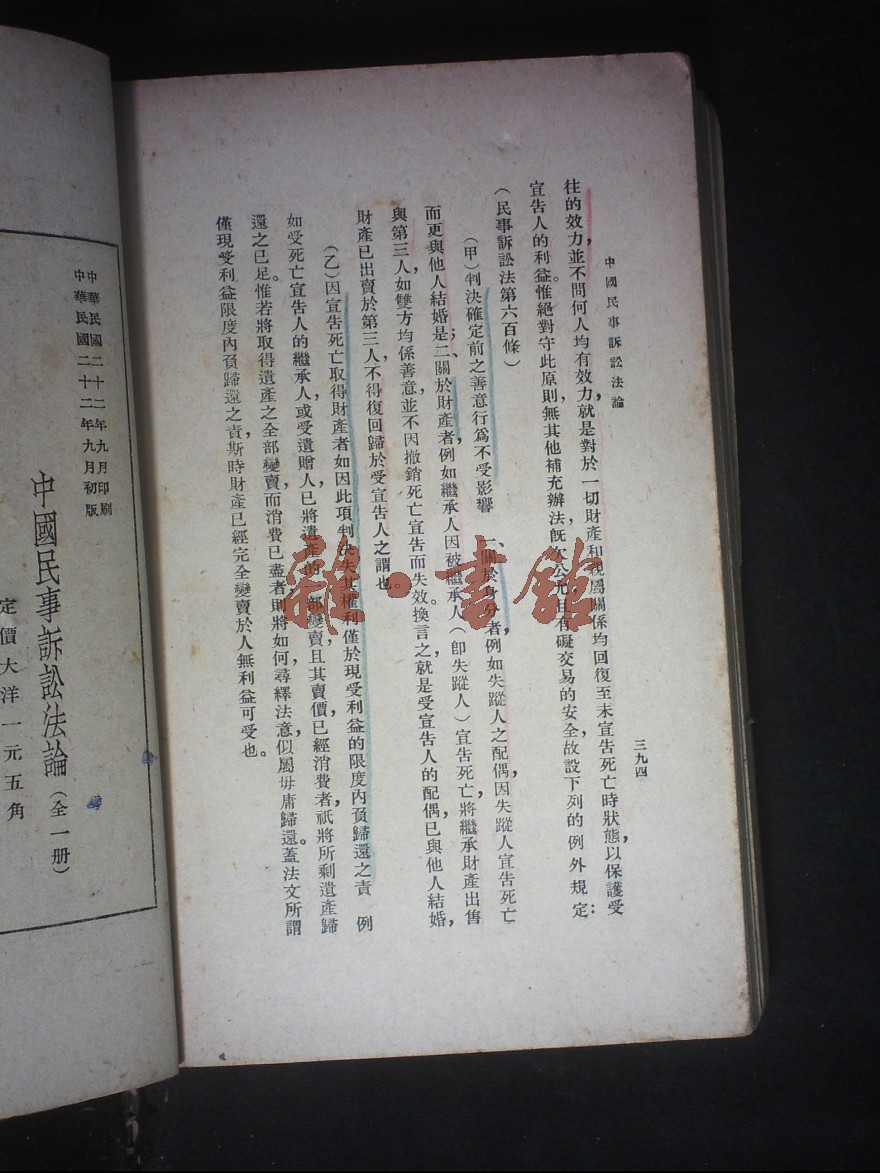 中國民事訴訟法論
三九四
往的效力並不問何人均有效力，就是對於一切財產和親屬關係均回復至未宣告死亡時狀態，以保護受
宣告人的利益。惟絕對守此原則，無其他補充辦法，旣欠公允且有礙交易的安全，故設下列的例外規定：
（民事訴訟法第六百條）
（甲）判決確定前之善意行爲不受影響　一、關於身分者，例如失蹤人之配偶，因失蹤人宣告死亡
而更與他人結婚是；二、關於財產者，例如繼承人因被繼承人（卽失蹤人）宣告死亡，將繼承財產出售
與第三人，如雙方均係善意並不因撤銷死亡宣告而失效。換言之，就是受宣告人的配偶，已與他人結婚，
財產已出賣於第三人，不得復回歸於受宣告人之謂也。
（乙）因宣告死亡取得財產者如因此項判決失其權利僅於現受利益的限度內負歸還之責　例
如受死亡宣告人的繼承人或受遺贈人已將遺產的一部變賣且其賣價已經消費者，祇將所剩遺產歸
還之已足。惟若將取得遺產之全部變賣，而消費已盡者，則將如何？尋繹法意，似屬毋庸歸還。蓋法文所謂
僅現受利益限度內負歸還之責，斯時財產已經完全變賣於人無利益可受也。
中華民國二十二年九月印刷
中華民國二十二年九月初版
中國民事訴訟法論（全一册）
定價大洋一元五角
雜·書館